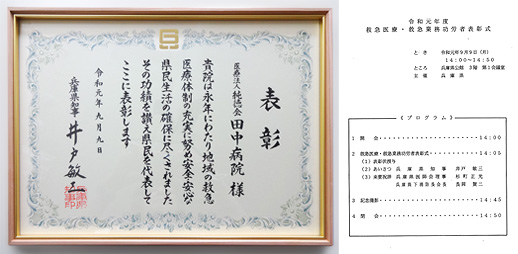 表彰
医療法人 純徳会
田中病院 様
貴院は永年にわたり地域の救急
医療体制の充実に努め安全・安心な
県民生活の確保に尽くされました
その功績を讃え県民を代表して
ここに表彰します
令和元年九月九日
兵庫県知事 井戸敏三
令和元年度
救急医療・救急業務功労者表彰式
とき 令和元年9月9日(月)
14:00~14:50
ところ 兵庫県公館 3階 第1会議室
主催 兵庫県
《プログラム》
1 開会 14:00
2 救急医療・救急業務功労者表彰式 14:05
(1)表彰状授与
(2)あいさつ 兵庫県知事 井戸 敏三
(3)来賓祝辞 兵庫県医師会理事 杉町 正光
兵庫県下消防長会会長 長岡 賢二
3 記念撮影 14:45
4 閉会 14:50